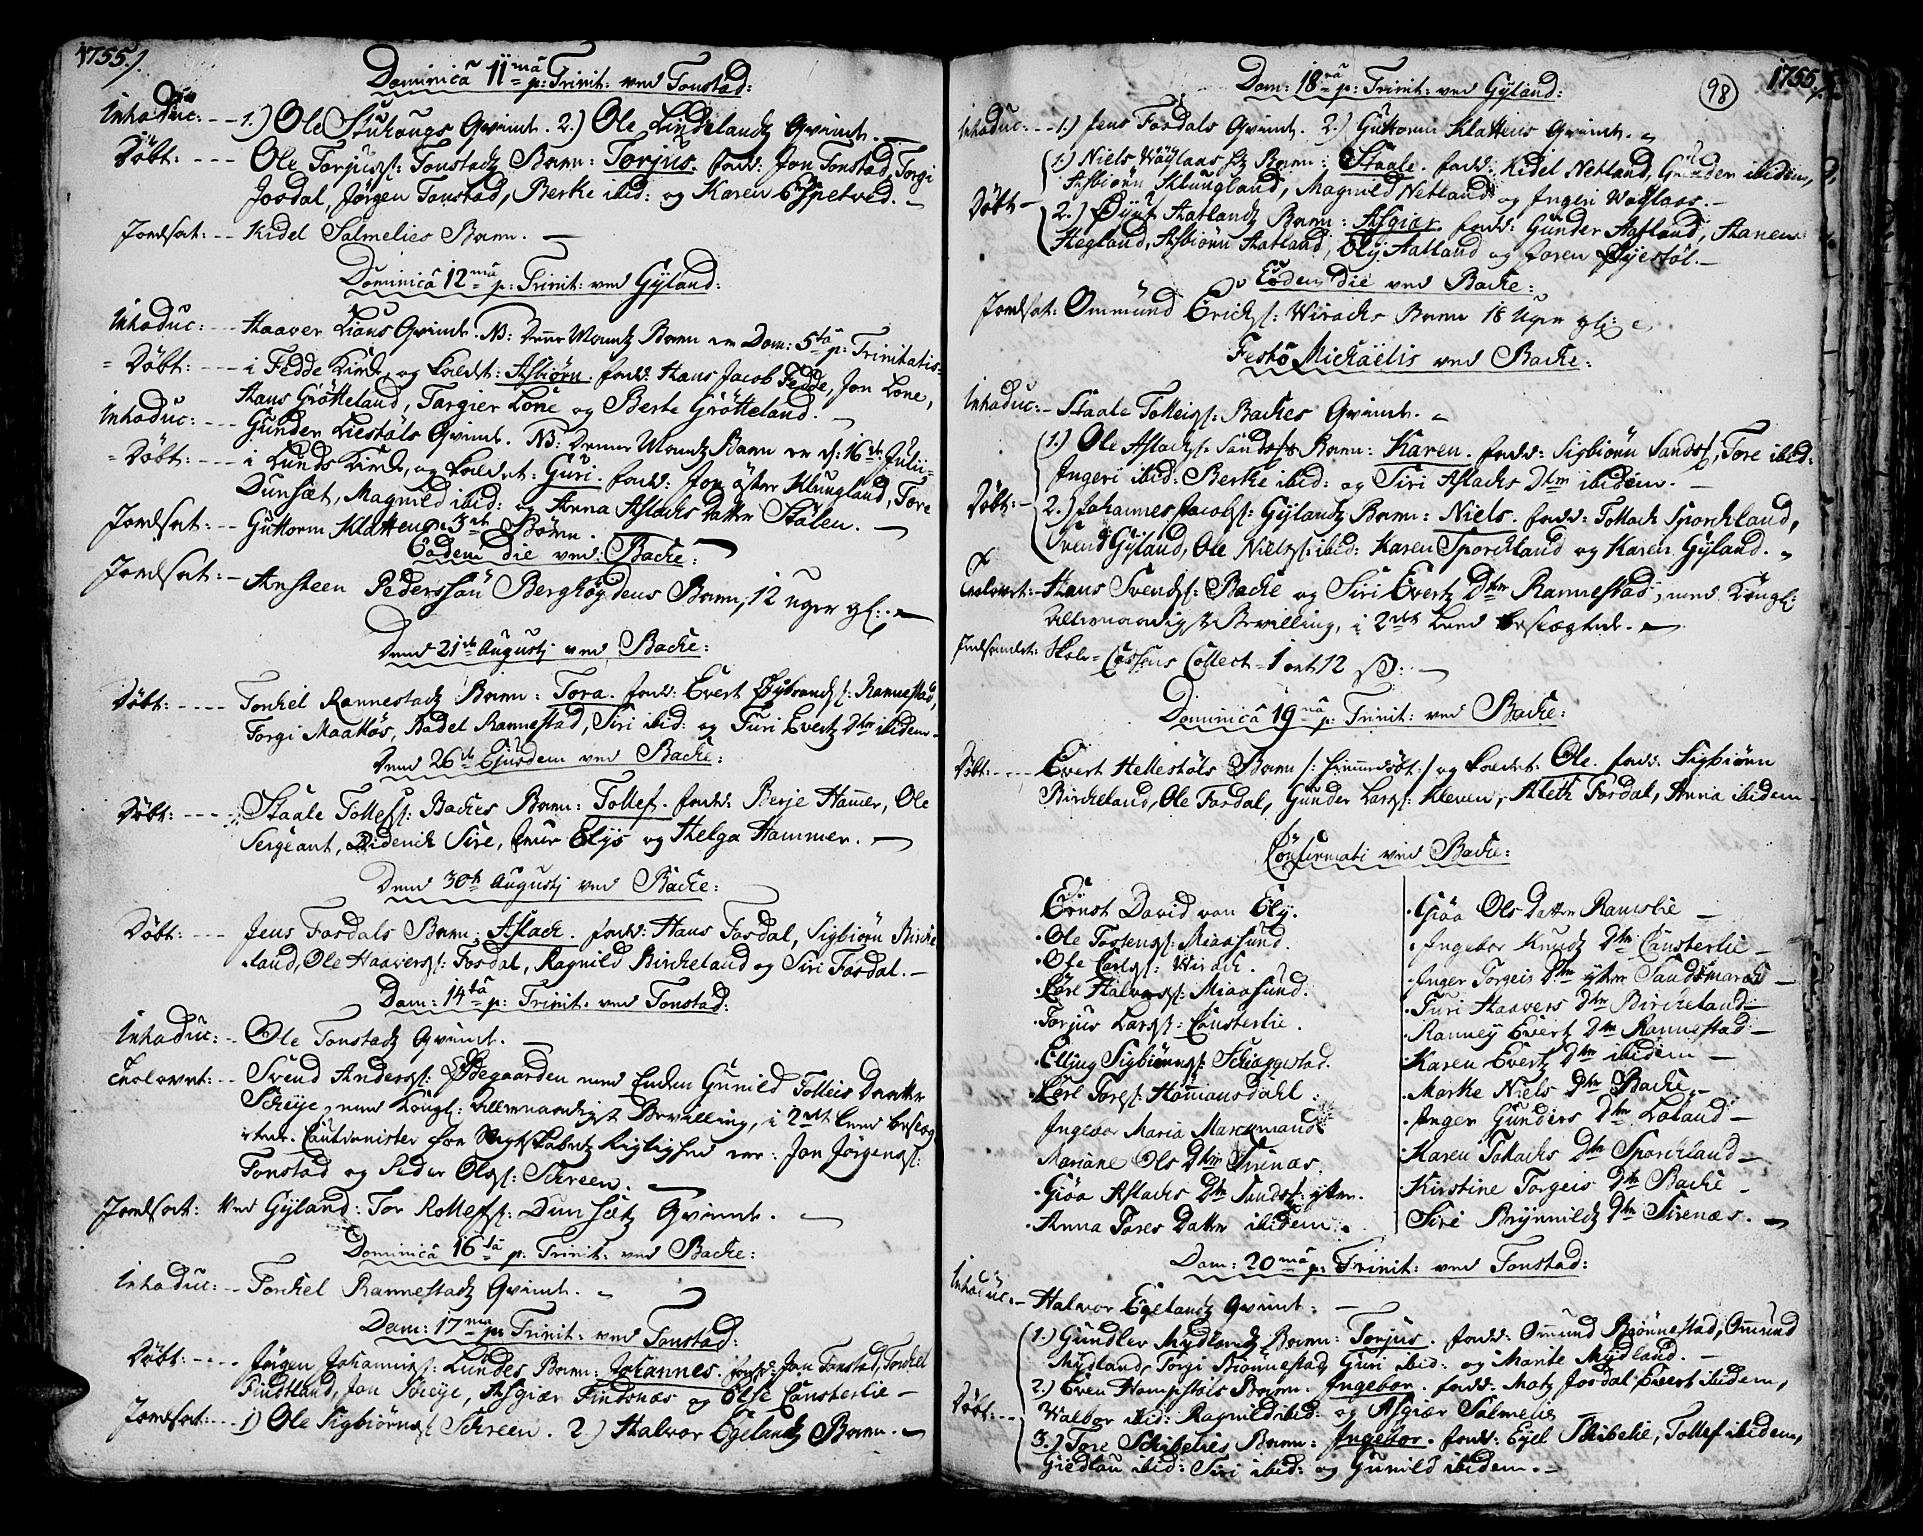 1755/.
Dominicâ 11mâ p: Trinit: ved Tonstad:
Inhaduc: -- 1.) Ole Stuhougs Qvinde. 2.) Ole Lindelandz Qvinde. —
Döbt: --- Ole Torjusß: Tonstadz Barn: Torjus. fadd: Jon Tonstad, Torgi
Josdal, Jörgen Tonstad, Berthe ibid: og Karen Espetved. —
Jordsat: -- Kidel Salmelies Barn. —
Dominicâ 12mâ p: Trinit: ved Gyland:
Inhaduc: -- Haaver Lians Qvinde. NB: Denne Mandz Barn er Dom: 5tâ p: Trinitatis
= Döbt: --- i Fedde Kirke, og kaldet: Asbiörn. fadd: Hans Jacob Fedde, Jon Lone,
Hans Grötteland, Targier Lone og Berte Grötteland. —
Inhaduc: --- Gunder Liestöls Qvinde. NB: Denne Mandz Barn er d: 16de Julii
= Döbt: --- i Lunds Kirke, og kaldet: Guri. fadd: Jon öster Klungland, Tore
Dunsæt, Magnild ibid: og Anna Aslachs Datter Stölen. —
Jordsat: -- Guttorm Klattens 3de Börn.
Eodem die ved Backe:
Jordsat: - Ansteen Pederssön Berghögdens Barn, 12 uger gl: —
Dend 21de Augustj ved Backe:
Döbt: ---- Tonkel Rannestadz Barn: Tora. fadd: Evert Öybrandß: Rannestad,
Torgi Maatlös, Badel Rannestad, Siri ibid: og Turi Evertz Dter ibidem
Dend 26de Ejusdem ved Backe:
Döbt: ---- Staale Tollefß: Backes Barn: Tollef. fadd: Berje Hamer, Ole
Sergeant, Diderich Sire, frue Elys og Helga Hammer. —
Dend 30te Augustj ved Backe:
Döbt: --- Jens Fosdals Barn: Aslach. fadd: Hans Fosdal, Sigbiörn Birke
land, Ole Haaversß: Fosdal, Ragnild Birckeland og Siri Fosdal. —
Dom: 14tâ p: Trinit: ved Tonstad:
Inhaduc: - Ole Tonstadz Qvinde. —
Trolovet: -- Svend Andersß: Ödegaarden med Enken Gunild Tolleis Daatter
Scheye, med Kongl: allernaadigst Bevilling, i 2det Leed beslæg
tede. Cautionister for Ægteskabetz Rigtighed ere: Jon Jörgensß:
Tonstad og Peder Olsß: Schreen. —
Jordsat: Ved Gyland: Tor Rollefß: Dunsætz Qvinde. —
Dominicâ 16tâ p: Trinit: ved Backe:
Inhaduc: - Torchel Rannestadz Qvinde.
Dom: 17mâ p: Trinit: ved Tonstad:
Döbt: ---- Jörgen Johannisß: Lundes Barn: Johannes. fadd: Jon Tonstad, Torchel
Findtland, Jon Scheye, Asgiær Findsnæs og Else Cansterlie —
Jordsat: --- 1) Ole Sigbiörnß: Schreen. 2.) Halvor Egelandz Barn. —
98
1755/.
Dom: 18nâ p: Trinit: ved Gyland:
Inhaduc: -- 1.) Jens Fosdals Qvinde. 2.) Guttorm Klattens Qvinde.
1.) Niels Waglaas Barn: Staale. fadd: Kidel Netland, Gunder ibidem,
Asbiörn Klungland, Magnild Netland og Ingeri Waglaas. —
Döbt — 2.) Öyuf Hatlandz Barn: Asgiær. fadd: Gunder Aatland,
Hegland, Asbiörn Hatland, Oly Aatland og Joren Öyestöl. —
Eodem die ved Backe:
Jordsat: Ommund Erichß: Wirachs Barn 18 Uger gl:
Festo Michaëlis ved Backe:
Inhaduc: - Staale Tolleisß: Backes Qvinde.
1.) Ole Aslachß: Sandss Barn: Karen. fadd: Sigbiörn Sandss, Tore ibid:
Ingeri ibid: Berthe ibid: og Siri Aslachs Dter ibidem. —
Döbt: - 2.) Johannes Jacobß: Gylandz Barn: Niels. fadd: Tollach Sporchland,
Svend Gyland, Ole Nielsß: ibid: Karen Sporchland og Karen Gyland.
Trolovet: - Hans Svendß: Backe og Siri Evertz Dter Rannestad, med Kongl:
allernaadigst Bevilling, i 2det Leed beslægtede. —
Indsamlet: Skole-Cassens Collect - 1 ort 12 ß: —
Dominicâ 19nâ p: Trinit: ved Backe:
Döbt: ---- Evert Hellestöls Barn /: hiemmedöbt :/ og kaldet Ole. fadd: Sigbiörn
Birckeland, Ole Fosdal, Gunder Larsß: Kleven, Aleth Fosdal, Anna ibidem
Confirmati ved Backe:
Ernst David von Ely.
Ole Tostensß: Miaasund.
Ole Carlsß: Wirach.
Carl Halvorsß: Miaasund.
Torjus Larsß: Cansterlie.
Elling Sigbiörnß: Schaggestad.
Carl Torsß: Homansdahl.
Ingebor Maria Marckmand
Mariane Ols Dter Sirenæs.
Giöa Aslachs Dter Sandss: ytter.
Anna Tores Datter ibidem.
Giöa Ols Datter Ramslie —
Ingebor Knudz Dter Cansterlie —
Inger Torgeis Dter ytter Sandsmarck
Turi Haavers Dter Birckeland —
Ranney Evertz Dter Rannestad —
Karen Evertz Dter ibidem —
Marthe Niels Dter Backe —
Inger Gunders Dter Loland —
Karen Tollachs Dter Sporchland —
Kirstine Torgeis Dter Backe —
Siri Brynnildz Dter Sirenæs. —
Dom: 20mâ p: Trinit: ved Tonstad:
Inhaduc: - Halvor Egelandz Qvinde: —
1.) Gundlev Mydlandz Barn: Torjus. fadd: Omund Brönnestad, Ommund
Mydland, Torgi Brönnestad, Guri ibid: og Marite Mydland. —
2.) Even Hompstöls Barn. Ingebor. fadd: Matz Josdal, Evert ibidem,
Döbt: -- Walbor ibid: Ragnild ibid: og Asgiær Salmelie
3.) Tore Schibelies Barn: Ingebor. fadd: Eyel Schibelie, Tollef ibidem,
Giedlau ibid: Siri ibid: og Gunild ibidem. —